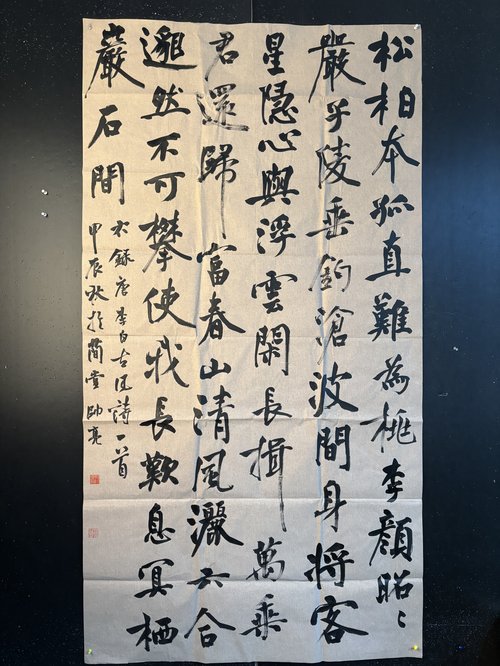 松柏本孤直難為桃李顏昭〻
嚴子陵垂鉤滄波間身將客
星隱心與浮雲閑長揖萬乘
君還歸富春山清風灑六合
邈然不可攀使我長歎息冥棲
巖石間
右錄唐李白古風詩一首
甲辰秋於堂帥亮